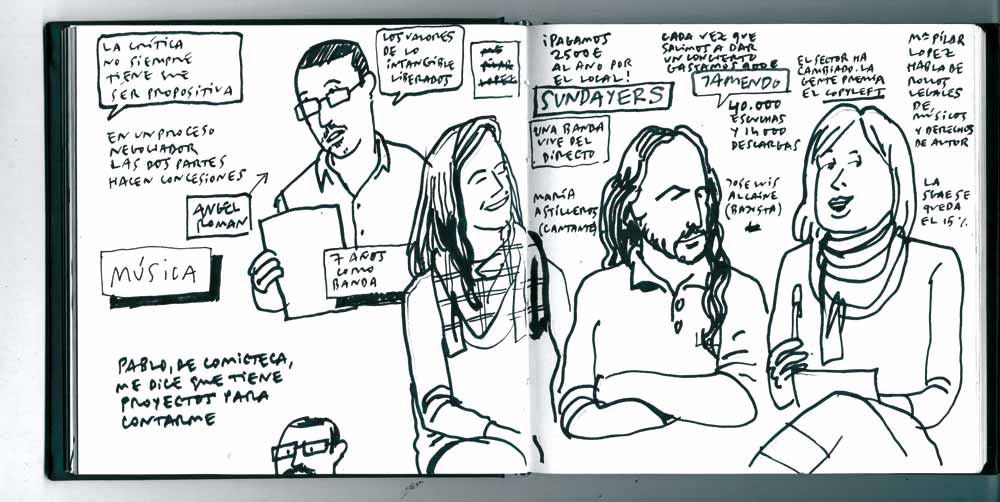 LA CRÍTICA
NO SIEMPRE
TIENE QUE
SER PROPOSITIVA
EN UN PROCESO
NEGOCIADOR
LAS DOS PARTES
HACEN CONCESIONES
ANGEL
ROMAN
MÚSICA
PABLO, DE COMICTECA,
ME DICE QUE TIENE
PROYECTOS PARA
CONTARME
LOS VALORES
DE LO
INTANGIBLE
LIBERADOS
PILAR
LOPEZ
7 AÑOS
COMO
BANDA
¡PAGAMOS
2500€
AL AÑO POR
EL LOCAL!
SUNDAYERS
UNA BANDA
VIVE DEL
DIRECTO
MARÍA
ASTILLEROS
(CANTANTE)
CADA VEZ QUE
SALIMOS A DAR
UN CONCIERTO
GASTAMOS 900€
JAMENDO
40.000
ESCUCHAS
Y 14000
DESCARGAS
JOSE LUIS
ALCAINE
(BAJISTA)
EL SECTOR HA
CAMBIADO. LA
GENTE PREMIA
EL COPYLEFT
Mª PILAR
LOPEZ
HABLA DE
ROLLOS
LEGALES
DE
MÚSICOS
Y DERECHOS
DE AUTOR
LA
SGAE SE
QUEDA
EL 15%